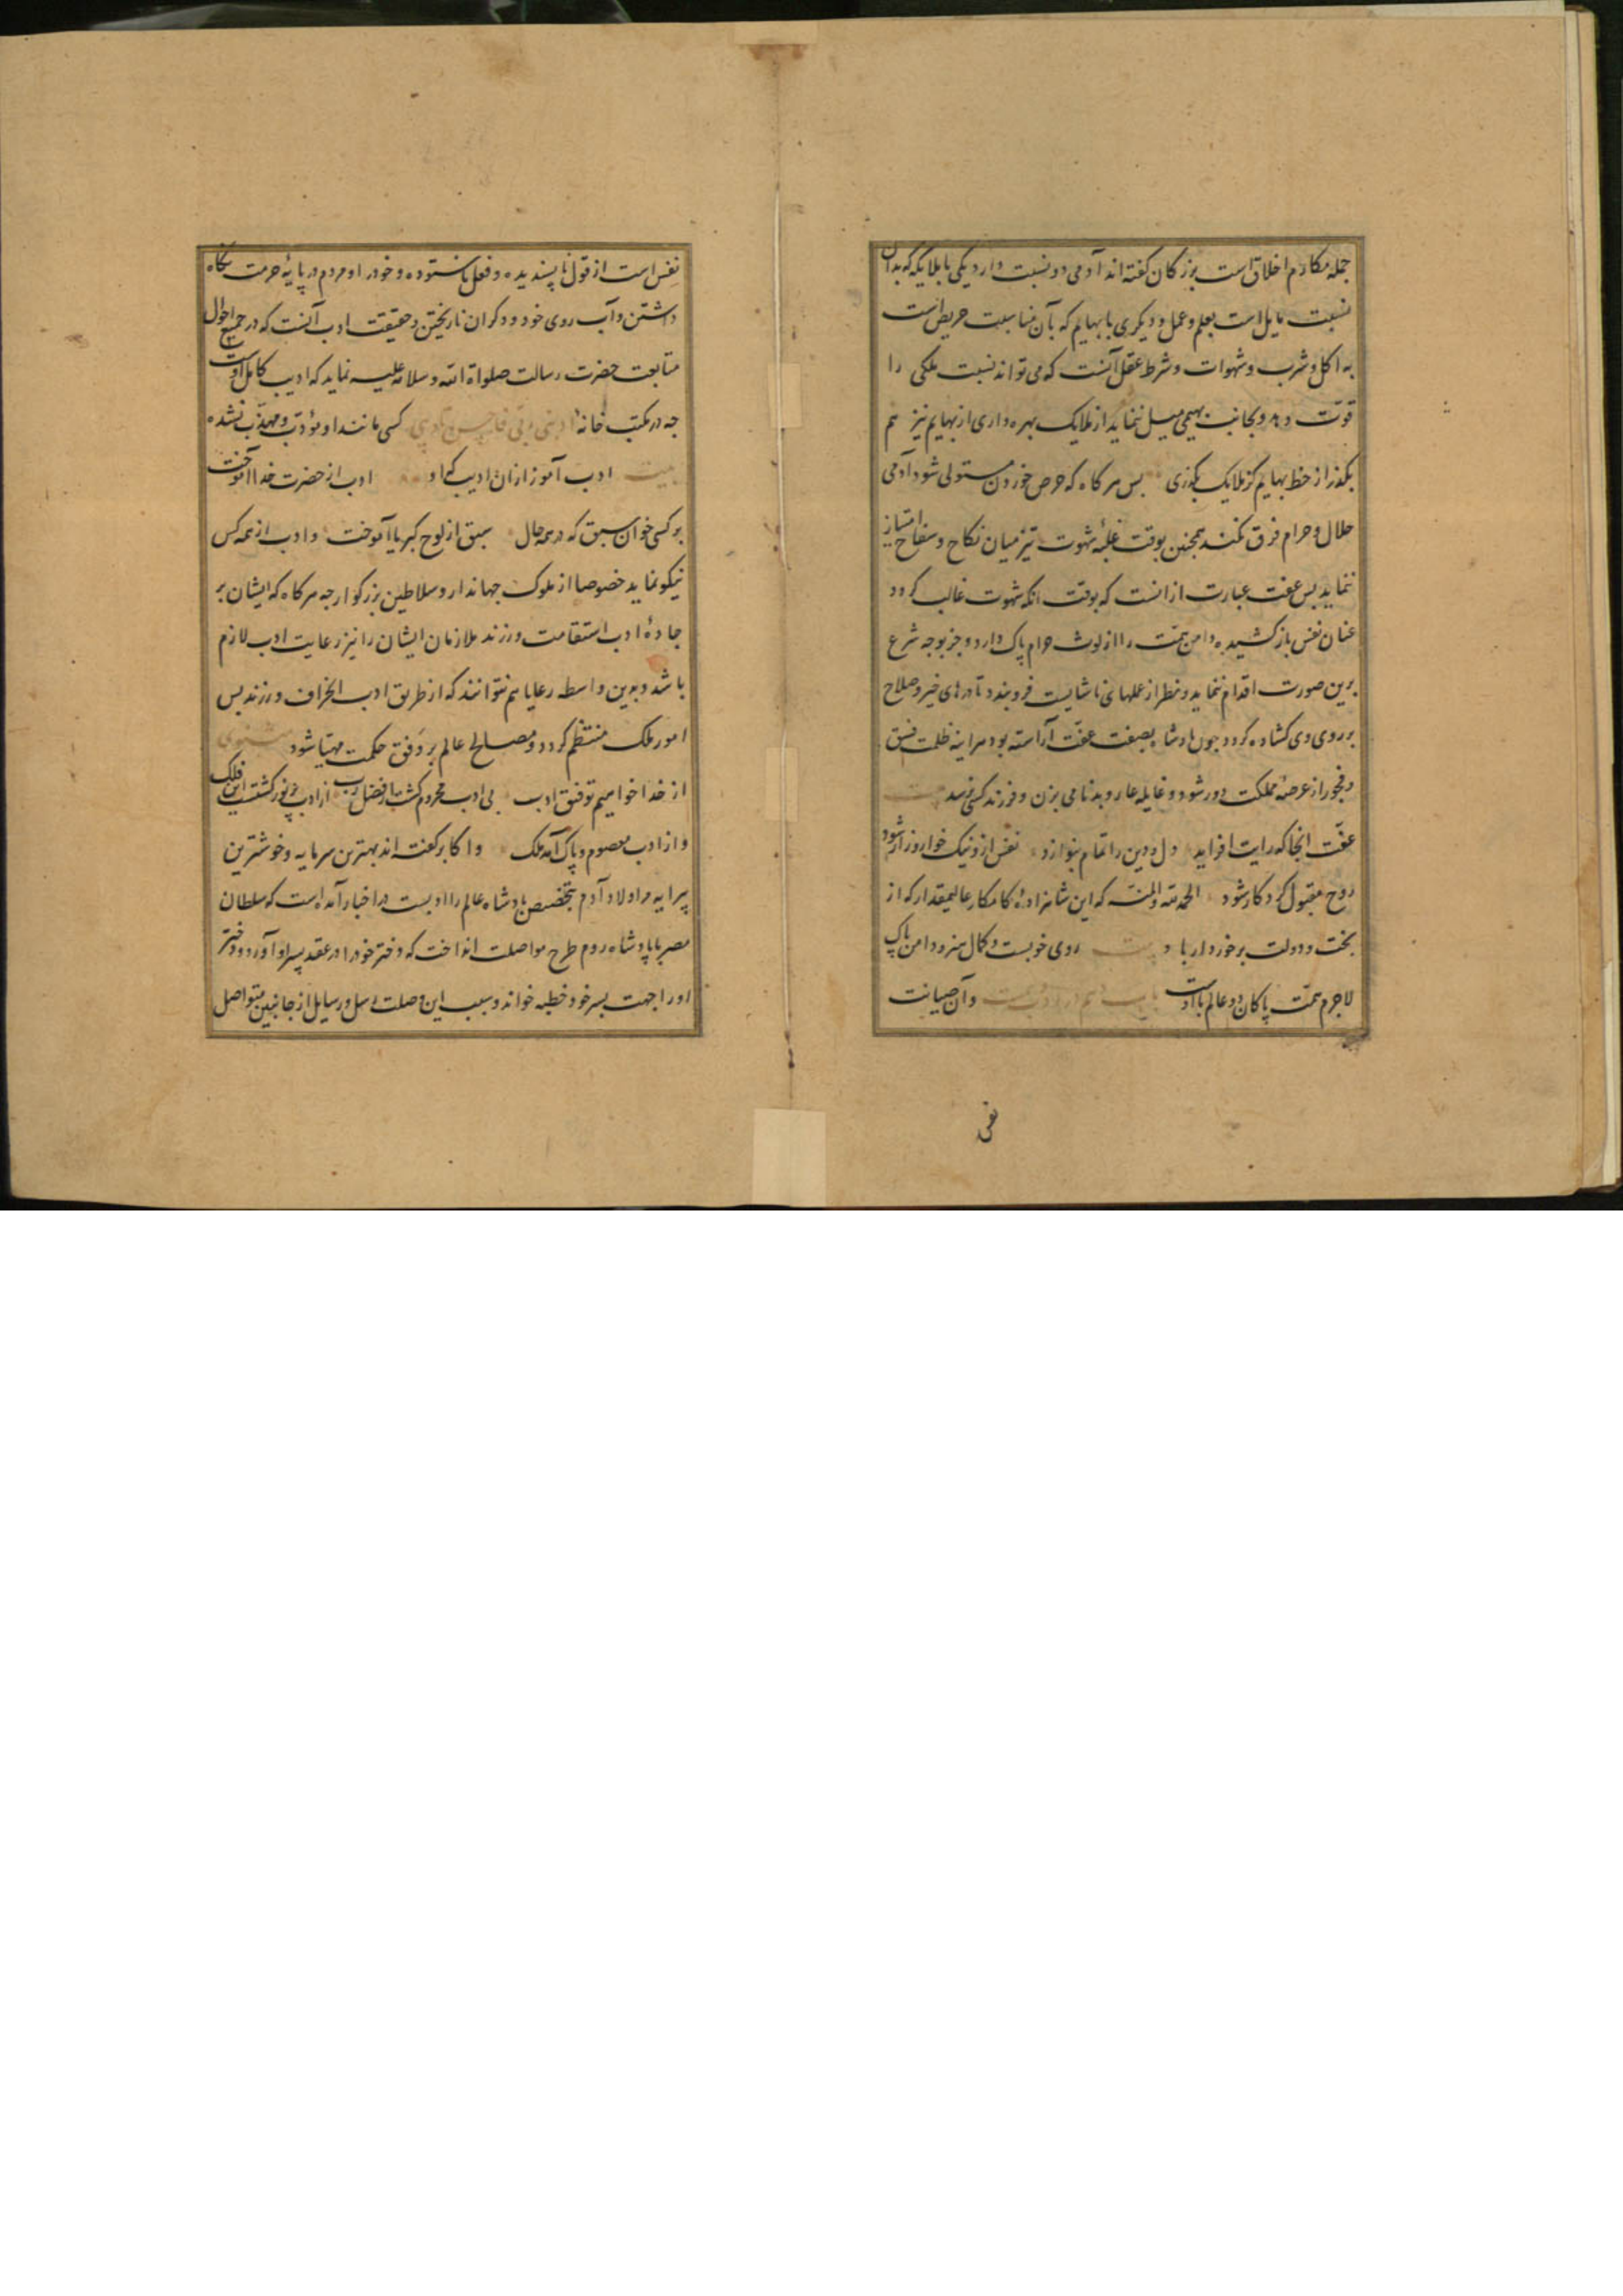 جمله مکارم اخلاق است بزرکان کفته اند آدمی دو نسبت دارد یکی با ملایکه که بدان
نسبت مایل است بعلم و عمل و دیکری با بهایم که بآن مناسبت حریص است
به اکل و شرب و شهوات و شرط عقل آنست که می تواند نسبت ملکی را
قوّت دهد و بجانب بهیمی میل ننماید از ملایک بهره داری از بهایم نیز هم
بکذر از حظ بهایم کز ملایک بکذری بس هرکاه که حرص خوردن مستولی شود آدمی
حلال و حرام فرق نکند همجنین بوقت غلبهٔ شهوت تیز میان نکاح و سفاح امتیاز
ننماید بس عفت عبارت ازانست که بوقت انکه شهوت غالب کردد
عنان نفس باز کشیده دامن همّت را از لوث حرام پاک دارد و جز بوجه شرع
برین صورت اقدام ننماید و نظر از عملهای ناشایست فرو بندد تا درهای خیر و صلاح
بر روی وی کشاده کردد جون پادشاه بصفت عفّت آراسته بود هراینه ظلمت فسق
و فجور از عرصهٔ مملکت دور شود و غایله عار و بدنامی بزن و فرزند کسی نرسد بیت
عفّت انجا که رایت افرازد دل و دین را تمام بنوازد نفس ازو نیک خوار و زار شود
روح مقبول کردکار شود الحمد لله و المنّه که این شاهزادهٔ کامکار عالیمقدار که از
بخت و دولت برخوردار باد بیت روی خوبست و کمال هنر و دامن پاک
لاجرم همّت پاکان دو عالم با اوست باب دهم در ادب و آن صیانت
نفس
نفس است از قول ناپسندیده و فعل ناستوده و خود را و مردم در پایهٔ حرمت نکاه
داشتن و آب روی خود و دکران نا ریختن و حقیقت ادب آنست که در جمیع احوال
متابعت حضرت رسالت صلواة الله و سلامه علیه نماید که ادیب کامل اوست
جه در مکتب خانهٔ ادبنی ربی فاحسن تادیبی کسی مانند او مؤدّب و مهذّب نشده
بیت ادب آموز ازان ادیب که او ادب از حضرت خدا آموخت
بر کسی خوان سبق که در همه حال سبق از لوح کبریا آموخت و ادب از همه کس
نیکو نماید خصوصا از ملوک جهاندار و سلاطین بزرکوار جه هرکاه که ایشان بر
جادهٔ ادب استقامت ورزند ملازمان ایشان را نیز رعایت ادب لازم
باشد و بدین واسطه رعایا هم نتوانند که از طریق ادب انحراف ورزند بس
امور ملک منتظم کردد و مصالح عالم بر وفق حکمت مهیّا شود مثنوی
از خدا خواهیم توفیق ادب بی ادب محروم کشت از فضل رب از ادب پرنور کشتست این فلک
و از ادب معصوم و پاک آمد ملک و اکابر کفته اند بهترین سرمایه و خوشترین
پیرایه مر اولاد آدم بتخصیص پادشاه عالم را ادبست در اخبار آمده است که سلطان
مصر با پادشاه روم طرح مواصلت انداخت که دختر خود را در عقد پسر او آورد و دختر
او را جهت بسر خود خطبه خواند و بسبب این وصلت رسل و رسایل از جانبین متواصل